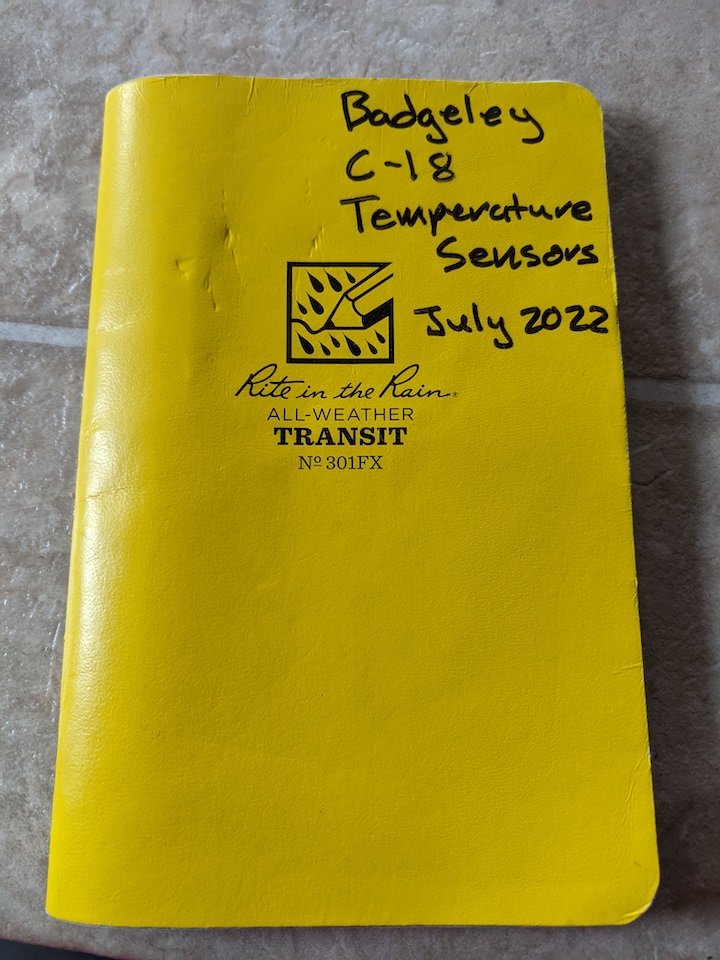 Badgeley
C-18
Temperature
Sensors
July 2022
Rite in the Rain®
ALL-WEATHER
TRANSIT
Nº 301FX